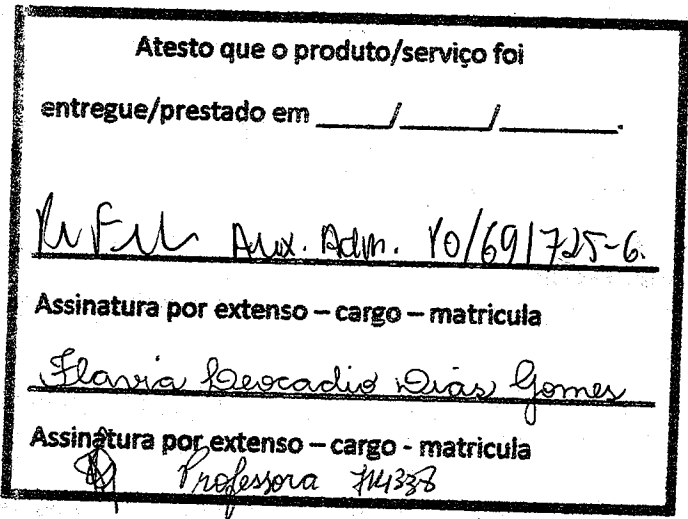 Atesto que o produto/serviço foi
entregue/prestado em ____/____/________.
Aux. Adm. 10/691725-6.
Assinatura por extenso – cargo – matricula
Flavia Leocadio Dias Gomes
Assinatura por extenso – cargo - matricula
Professora 714338